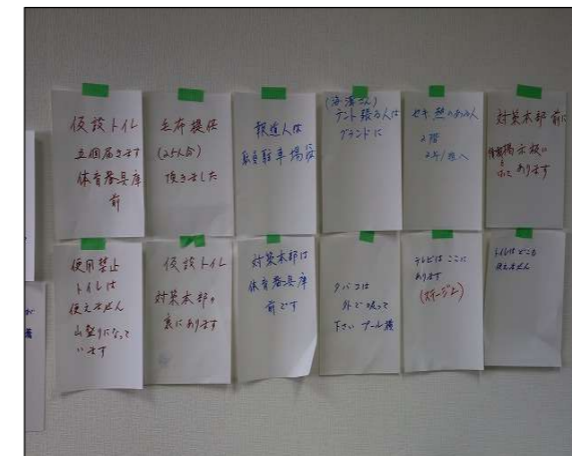 仮設トイレ
五個届きます
体育器具庫
前
毛布提供
(25人分)
頂きました
報道人は
駐車場
テント張る人は
グランドに
セキ 熱のある人
2階
対策本部前に
掲示板
あります
使用禁止
トイレは
使えません
山盛りになって
います
仮設トイレ
対策本部の
裏にあります
対策本部は
体育器具庫
前です
タバコは
外で吸って
下さい プール横
テレビはここに
あります
(ステージ上)
トイレはどこも
使えません